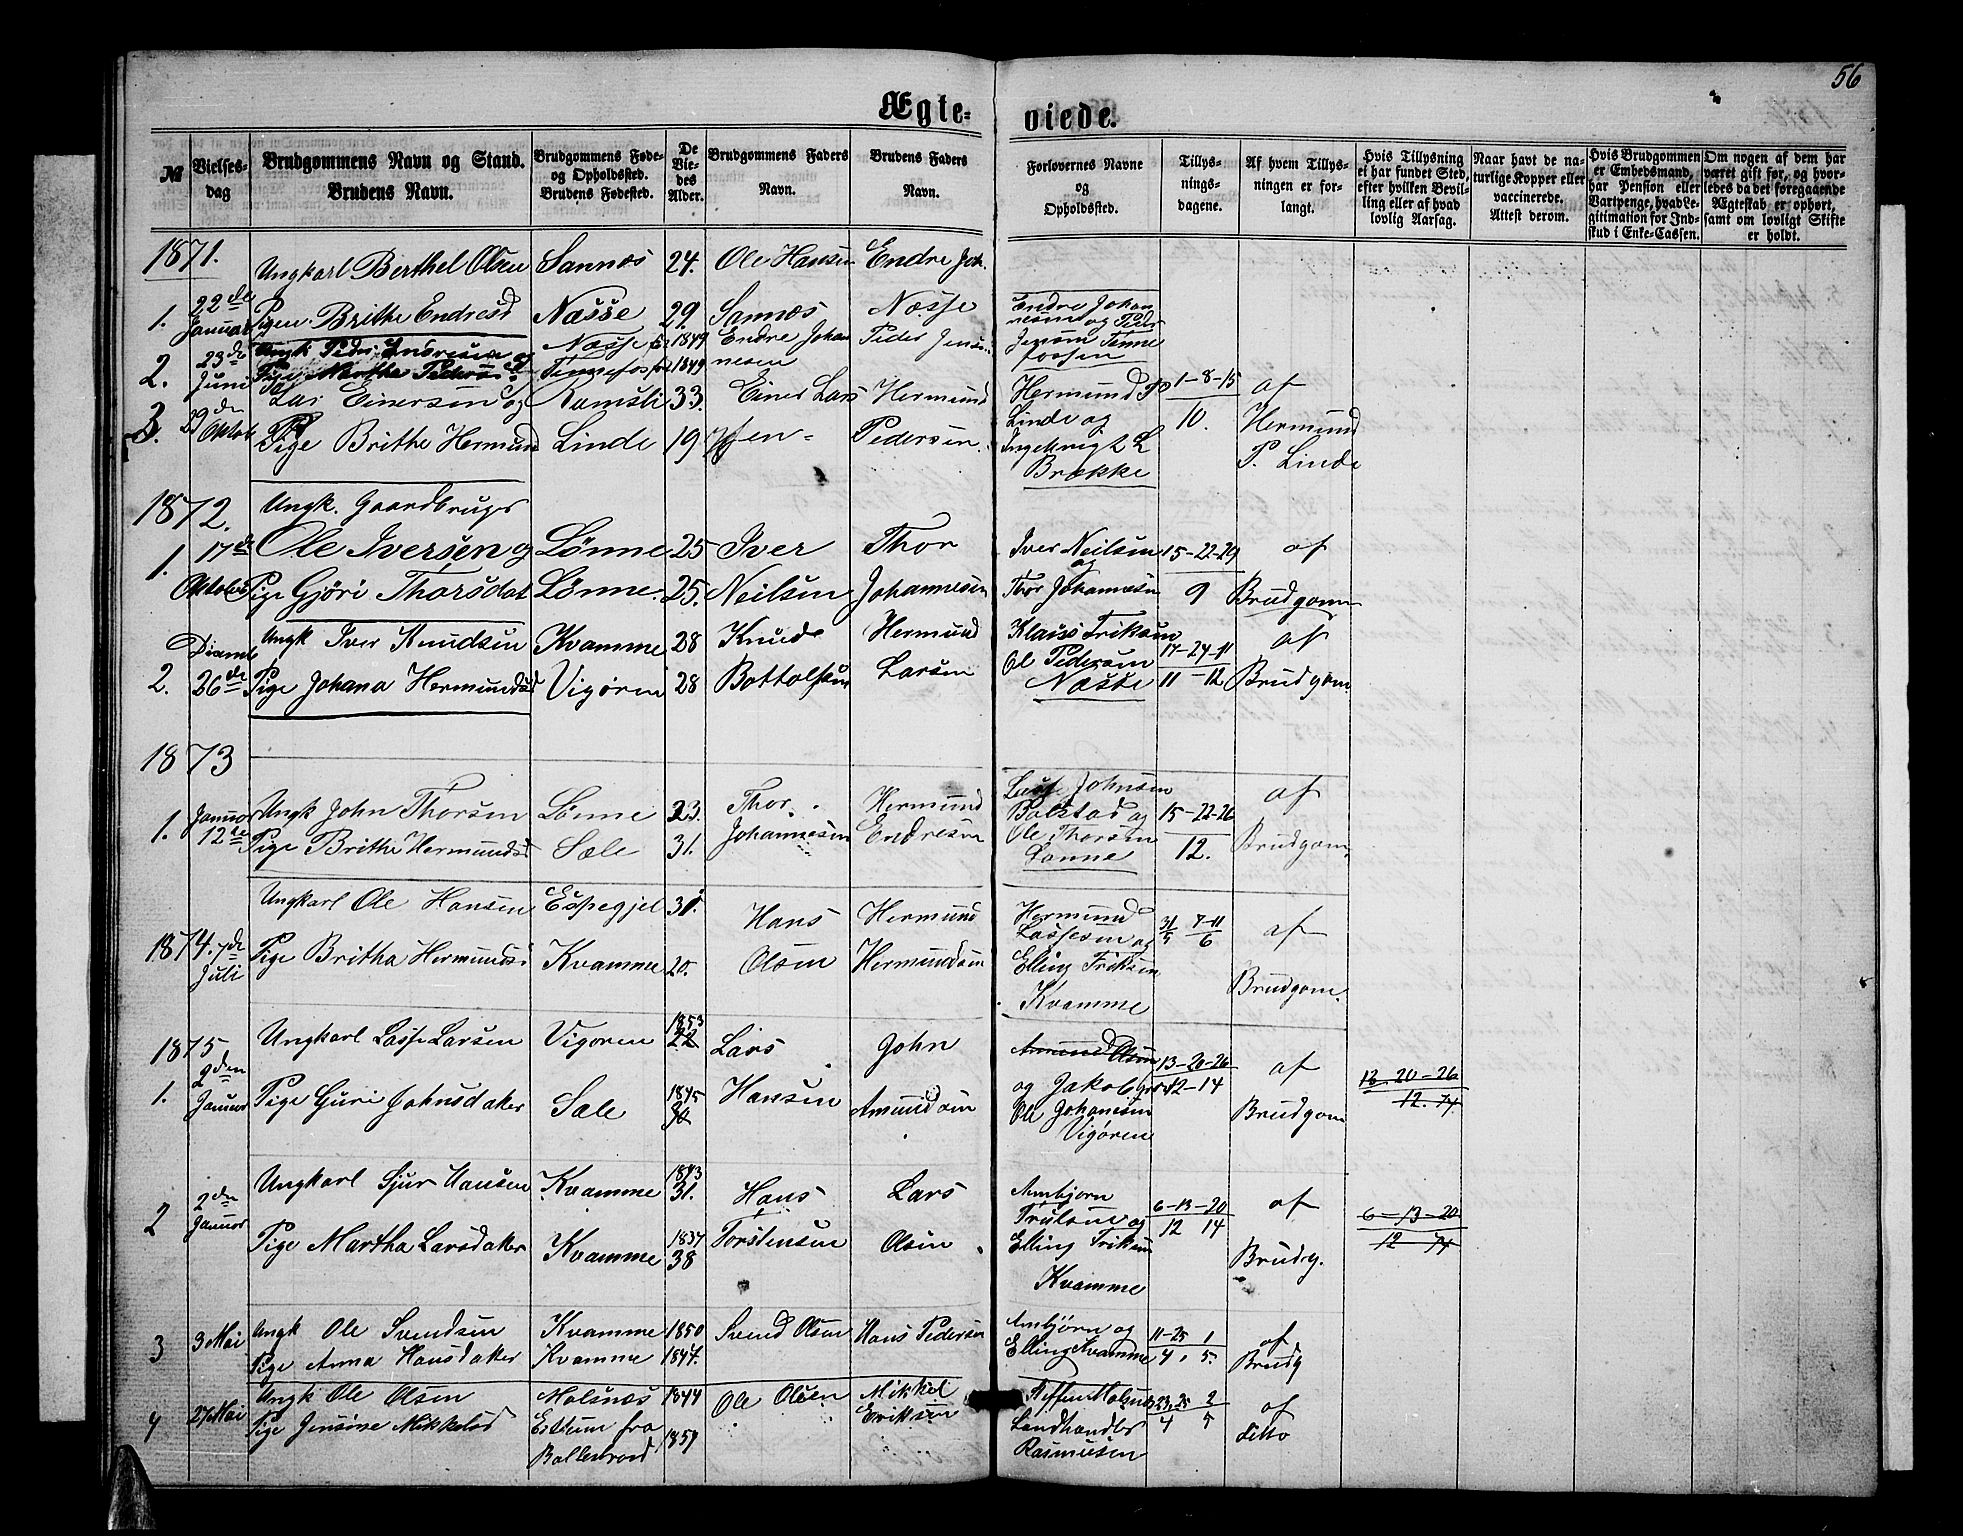 56
Ægte-
viede.
№
Vielses-
dag
Brudgommens Navn og Stand.
Brudens Navn.
Brudgommens Føde-
og Opholdssted.
Brudens Fødested.
De
Vie-
des
Alder.
Brudgommens Faders
Navn.
Brudens Faders
Navn.
Forlovernes Navne
og
Opholdssted.
Tillys-
nings-
dagene.
Af hvem Tillys-
ningen er for-
langt.
Hvis Tillysning
ei har fundet Sted,
efter hvilken Bevil-
ling eller af hvad
lovlig Aarsag.
Naar havt de na-
turlige Kopper eller
vaccinerede.
Attest derom.
Hvis Brudgommen
er Embedsmand,
har Pension eller
Vartpenge, hvad Le-
gitimation for Ind-
skud i Enke-Cassen.
Om nogen af dem har
været gift før, og hvor-
ledes da det foregaaende
Ægteskab er ophørt,
samt om lovligt Skifte
er holdt.
1871.
Ungkarl Berthel Olsen Sannæs 24. Ole Hansen Endre Joh.
1. 22de Januar Pigen Brithe Endresd Næsse 29. Sannæs Næsse
Endre Johan
nesen og Peder
Jensen Tenne
fossen
2. 23de Juni Ungk Peder Endresen og Næsse 1849 Endre Johan Peder Jens
Pige Martha Pedersd Tennefos 1849 nesen
3. 29den Oktob Lar Einersen og Ramsli 33. Einer Lars Hermund
Pige Brithe Hermund Linde 19 sen - Pedersen.
Hermund P 1-8-15 af
Linde og 10. Hermund
Ingebrigt L P. Linde
Brække
1872.
Ungk. Gaardbruger
1. 17de Ole Iversen og Lønne 25 Iver Thor Iver Neilsen 15-22-29 af
og
Oktober Pige Gjøri Thorsdat Lønne. 25. Neilsen Johannesen Thor Johannesen 9 Brudgom
2. Decemb 26de Ungk Iver Knudsen Kvamme 28 Knud Hermund Klaus Eriksen 17-24-11 af
Pige Johana Hermundsd Vigøren 28 Bottolfsen Larsen Ol Pedersen 11-12 Brudgom.
Næsse
1873
1. Januar 12te Ungk John Thorsen Lønne 23. Thor Hermund Johnsen af
Pige Brithe Hermundsd Sæle 31. Johannesen Endresen Bolstad og 15-22-26
Ole Thorsen 12. Brudgom.
Lønne
1874. 7de Juli Ungkarl Ole Hansen Espegjel 31. Hans Hermund Hermund 31/5 7-11/6 af
Pige Britha Hermunds Kvamme 20. Olsen Hermundsen Lassesen og
Elling Eriksen Brudgom.
Kvamme
1875
1. 2den Januar Ungkarl Lasse Larsen Vigøren 1853 22 Lars John Amund Olsen 13-20-26 af 13-20-26
Pige Guri Johnsdater Sæle 1845 30 Hansen Amundsen og Jakob 12-14 Brudgom 12.74
Ole Johanesen
Vigøren
2 2den Januar Ungkarl Sjur Hansen Kvamme 1843 31. Hans Lars Ambjørn 6-13-20 af 6-13-20
Pige Martha Larsdater Kvamme 1837 38 Torstensen Olsen Trulsen og 12 14 Brudg. 12 74
Elling Eriksen
Kvamme
3 3 Mai Ungk Ole Svendsen Kvamme 1850 Svend Olsen Hans Pedersen Ambjørn og 11-25 1 af
Pige Anna Hansdater Kvamme 1847. Elling Kvamme 4. 5. Brudg
4 27 Mai Ungk Ole Olsen Molsnæs 1844 Ole Olsen Mikkel 23,25 2 af
Pige Jensine Mikkelsd fra 1857 Eriksen Landhandler 4 5 ditto
Rasmusen